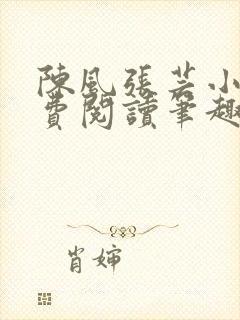 陳風張芸小
費閱讀筆趣
肖婶